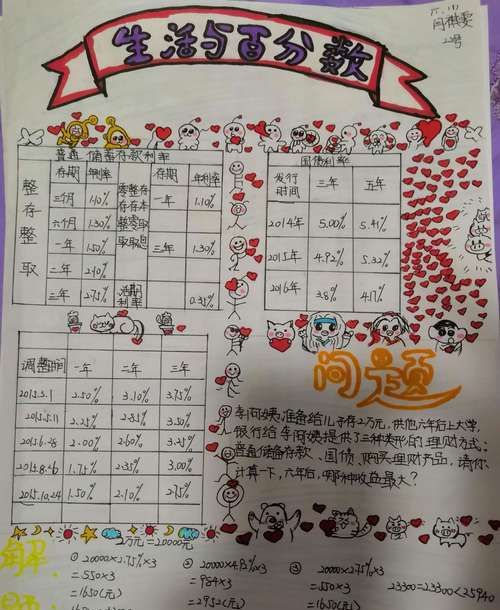 生活与百分数
22号
普通储蓄存款利率
存期 年利率 存期 年利率
整存整取
三个月 1.10% 零整存 一年 1.10%
六个月 1.30% 存存本
一年 1.50% 整零取 三年 1.30%
二年 2.10% 取取息
三年 2.75% 活期利率 0.35%
国债利率
发行时间 三年 五年
2014年 5.00% 5.41%
2015年 4.92% 5.32%
2016年 3.8% 4.17%
调整时间 一年 二年 三年
2015.5.1 2.50% 3.10% 3.75%
2015.5.11 2.25% 2.85% 3.50%
2015.6.28 2.00% 2.60% 3.25%
2015.8.26 1.75% 2.35% 3.00%
2015.10.24 1.50% 2.10% 2.75%
问题
李阿姨准备给儿子存2万元,供他六年后上大学,
银行给李阿姨提供了三种类形的理财方式:
普通储备存款、国债、购买理财产品,请你
计算一下,六年后,哪种收益最大?
解:
2万元=20000元
① 20000×2.75%×3
=550×3
=1650(元)
② 20000×4.92%×3
=984×3
=2952(元)
③ 20000×2.75%×3
=550×3
=1650(元)
23300=23300<25940